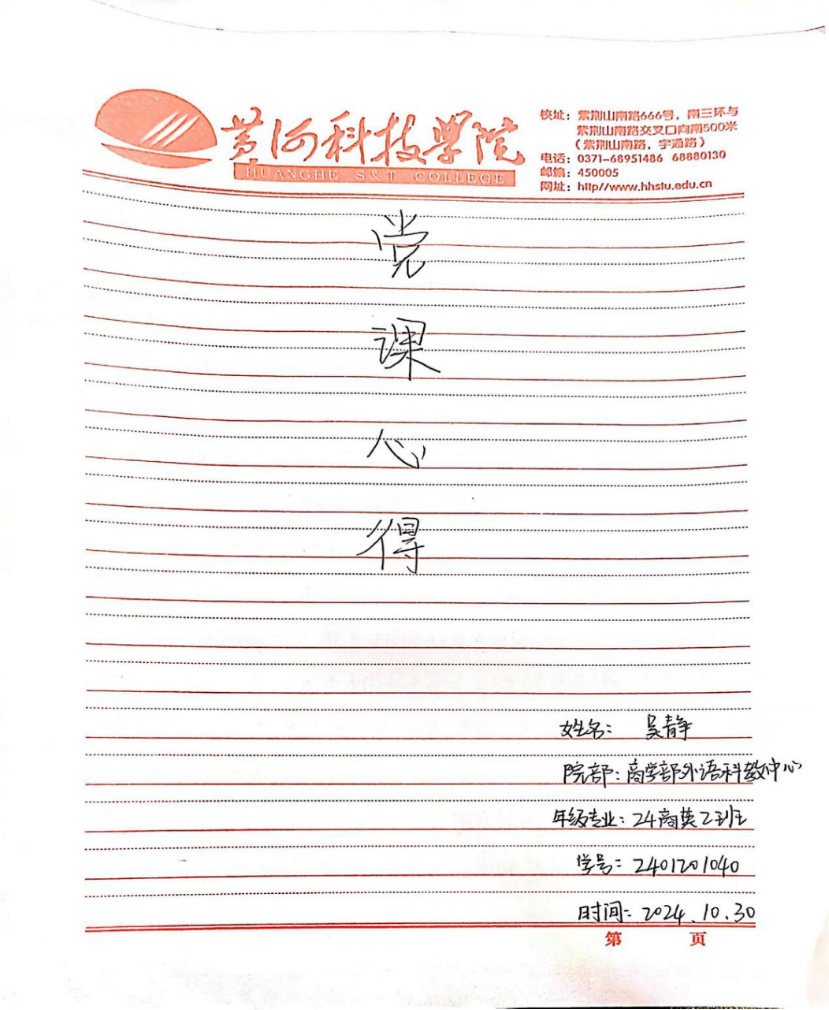 黄河科技学院
HUANGHE S&T COLLEGE
校址：紫荆山南路666号，南三环与
紫荆山南路交叉口向南500米
（紫荆山南路，宇通路）
电话：0371-68951486 68880130
邮编：450005
网址：http//www.hhstu.edu.cn
党
课
心
得
姓名： 吴静
院部：商学部外语科教中心
年级专业：24商英2班
学号：2401201040
时间：2024.10.30
第 页